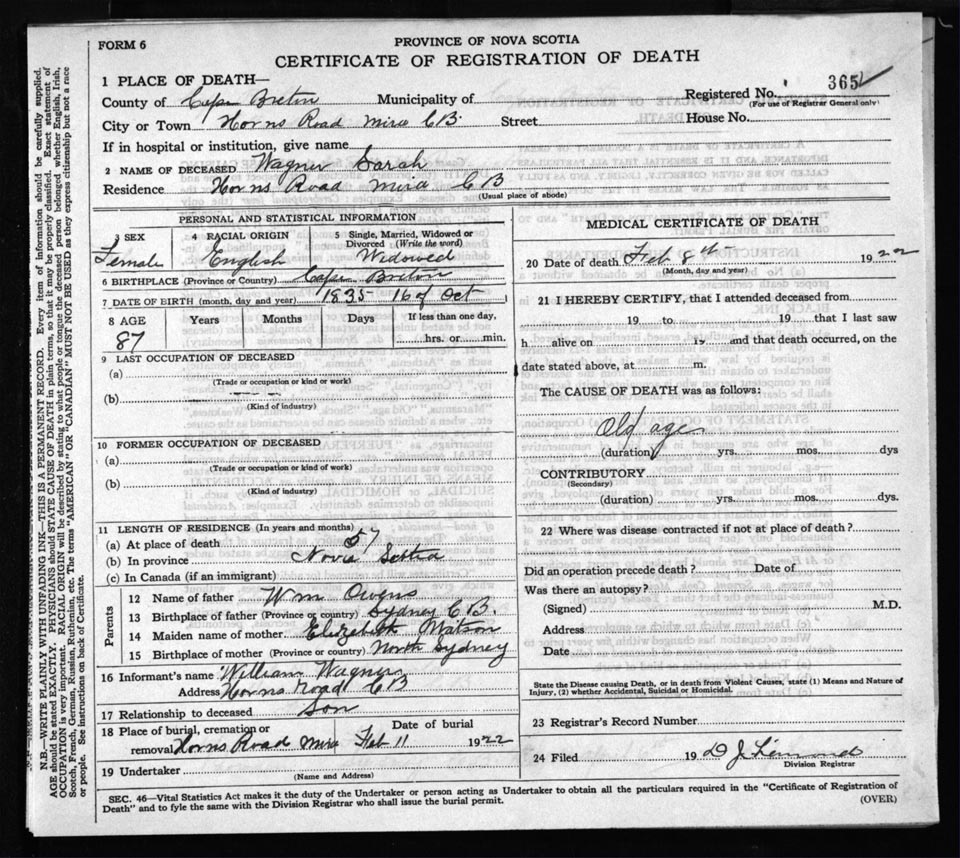 FORM 6
PROVINCE OF NOVA SCOTIA
CERTIFICATE OF REGISTRATION OF DEATH
1 PLACE OF DEATH—
Registered No. 365
(For use of Registrar General only)
County of Cape Breton Municipality of
City or Town Horns Road Mira CB Street House No.
If in hospital or institution, give name
2 NAME OF DECEASED Wagner Sarah
Residence Horns Road Mira CB
(Usual place of abode)
PERSONAL AND STATISTICAL INFORMATION
3 SEX 4 RACIAL ORIGIN 5 Single, Married, Widowed or Divorced (Write the word)
Female English Widowed
6 BIRTHPLACE (Province or Country) Cape Breton
7 DATE OF BIRTH (month, day and year) 1835 16 of Oct
8 AGE Years Months Days If less than one day,
87 hrs. or min.
9 LAST OCCUPATION OF DECEASED
(a)
(Trade or occupation or kind or work)
(b)
(Kind of industry)
10 FORMER OCCUPATION OF DECEASED
(a)
(Trade or occupation or kind or work)
(b)
(Kind of industry)
11 LENGTH OF RESIDENCE (In years and months)
(a) At place of death 57
(b) In province Nova Scotia
(c) In Canada (if an immigrant)
Parents
12 Name of father Wm Owens
13 Birthplace of father (Province or country) Sydney C B.
14 Maiden name of mother Elizebeth Matson
15 Birthplace of mother (Province or country) North Sydney
16 Informant's name William Wagner
Address Horns Road CB
17 Relationship to deceased Son
18 Place of burial, cremation or Date of burial
removal Horns Road Mira Feb 11 1922
19 Undertaker
(Name and Address)
MEDICAL CERTIFICATE OF DEATH
20 Date of death Feb 8th 1922
(Month, day and year)
21 I HEREBY CERTIFY, that I attended deceased from
19 to 19 that I last saw
h alive on 19 and that death occurred, on the
date stated above, at m.
The CAUSE OF DEATH was as follows:
Old age
(duration) yrs. mos. dys
CONTRIBUTORY
(Secondary)
(duration) yrs. mos. dys.
22 Where was disease contracted if not at place of death?
Did an operation precede death? Date of
Was there an autopsy?
(Signed) M.D.
Address
Date
State the Disease causing Death, or in death from Violent Causes, state (1) Means and Nature of
Injury, (2) whether Accidental, Suicidal or Homicidal.
23 Registrar's Record Number
24 Filed 19 D J
Division Registrar
SEC. 46—Vital Statistics Act makes it the duty of the Undertaker or person acting as Undertaker to obtain all the particulars required in the "Certificate of Registration of
Death" and to fyle the same with the Division Registrar who shall issue the burial permit.
(OVER)
N.B.—WRITE PLAINLY WITH UNFADING INK—THIS IS A PERMANENT RECORD. Every item of information should be carefully supplied.
AGE should be stated EXACTLY. PHYSICIANS should STATE CAUSE OF DEATH in plain terms, so that it may be properly classified. Exact statement of
OCCUPATION is very important. RACIAL ORIGIN will be described by stating to what people or tongue the deceased person belonged, whether English, Irish,
Scotch, French, German, Russian, Ruthenian, etc. The terms "AMERICAN" OR "CANADIAN" MUST NOT BE USED as they express citizenship but not a race
or people. See instructions on back of Certificate.